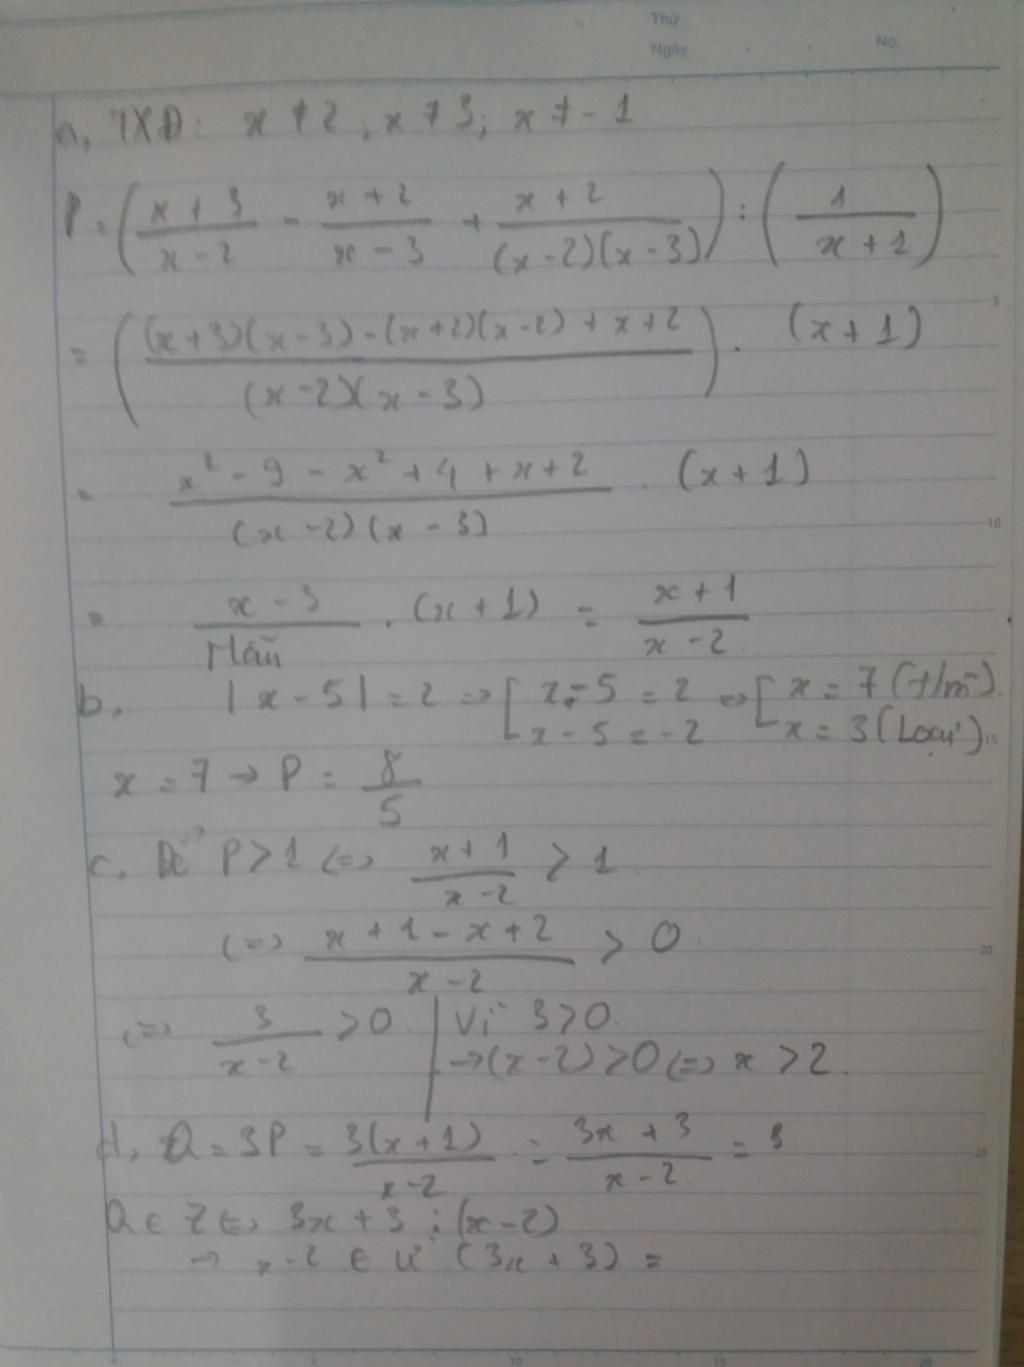 Thứ
Ngày
No.
a, TXĐ: x ≠ 2; x ≠ 3; x ≠ -1
P = ((x + 3)/(x - 2) - (x + 2)/(x - 3) + (x + 2)/((x - 2)(x - 3))) : (1/(x + 1))
= (((x + 3)(x - 3) - (x + 2)(x - 2) + x + 2)/((x - 2)(x - 3))) . (x + 1)
= (x² - 9 - x² + 4 + x + 2)/((x - 2)(x - 3)) . (x + 1)
= (x - 3)/Mẫu . (x + 1) = (x + 1)/(x - 2)
b, |x - 5| = 2 => [x - 5 = 2 <=> [x = 7 (t/m)
x - 5 = -2 x = 3 (Loại)
x = 7 → P = 8/5
c, Để P > 1 <=> (x + 1)/(x - 2) > 1
<=> (x + 1 - x + 2)/(x - 2) > 0
<=> 3/(x - 2) > 0 | Vì 3 > 0
→ (x - 2) > 0 <=> x > 2
d, Q = 3P = 3(x + 1)/(x - 2) = (3x + 3)/(x - 2) = 3
Q ∈ Z <=> 3x + 3 ⋮ (x - 2)
→ x - 2 ∈ Ư (3x + 3) =
5
10
15
20
25
0
5
10
15
20